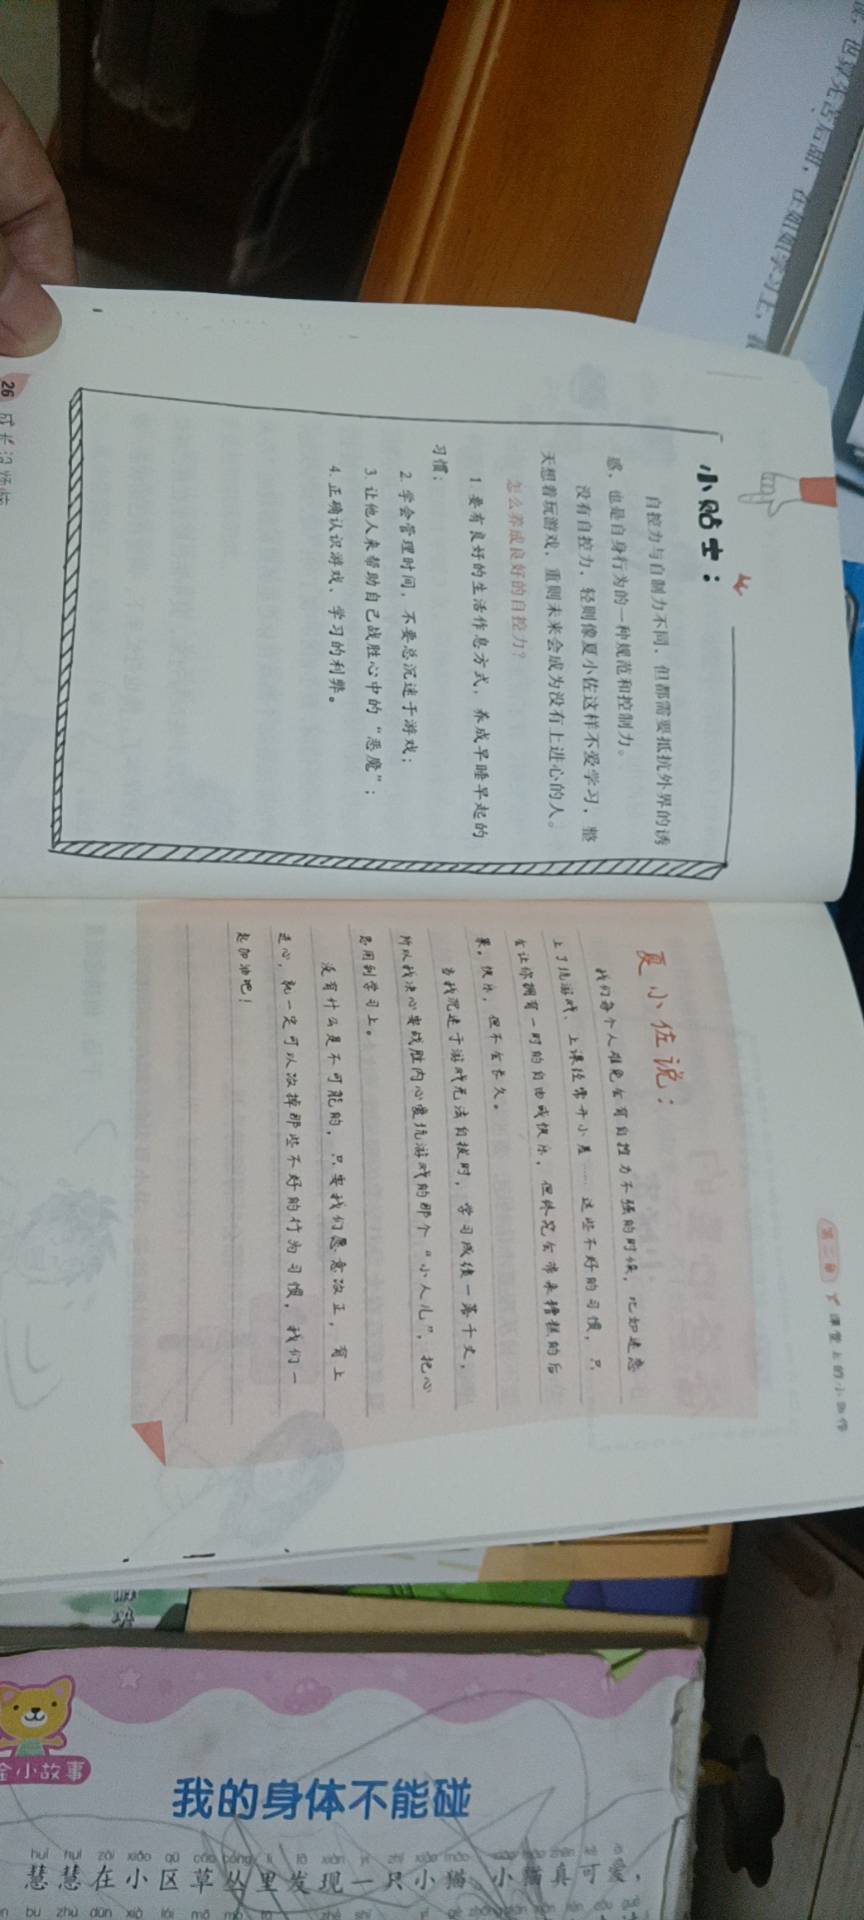 小贴士：
自控力与自制力不同，但都需要抵抗外界的诱
惑，也是自身行为的一种规范和控制力。
没有自控力，轻则像夏小佐这样不爱学习，整
天想着玩游戏，重则未来会成为没有上进心的人。
怎么养成良好的自控力？
1. 要有良好的生活作息方式，养成早睡早起的
习惯；
2. 学会管理时间，不要总沉迷于游戏；
3. 让他人来帮助自己战胜心中的“恶魔”；
4. 正确认识游戏、学习的利弊。
26
第二章
课堂上的小动作
夏小佐说：
我们每个人难免会有自控力不强的时候，比如迷恋
上了玩游戏、上课经常开小差……这些不好的习惯，只
会让你拥有一时的自由或快乐，但终究会带来糟糕的后
果。快乐，但不会长久。
当我沉迷于游戏无法自拔时，学习成绩一落千丈，
所以我决心要战胜内心爱玩游戏的那个“小人儿”，把心
思用到学习上。
没有什么是不可能的，只要我们愿意改正，有上
进心，就一定可以改掉那些不好的行为习惯，我们一
起加油吧！
小故事
我的身体不能碰
慧慧在小区草丛里发现一只小猫，小猫真可爱，